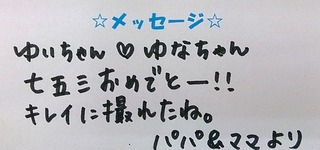 ☆メッセージ☆
ゆいちゃん♡ゆなちゃん
七五三おめでとー!!
キレイに撮れたね。
パパ&ママより